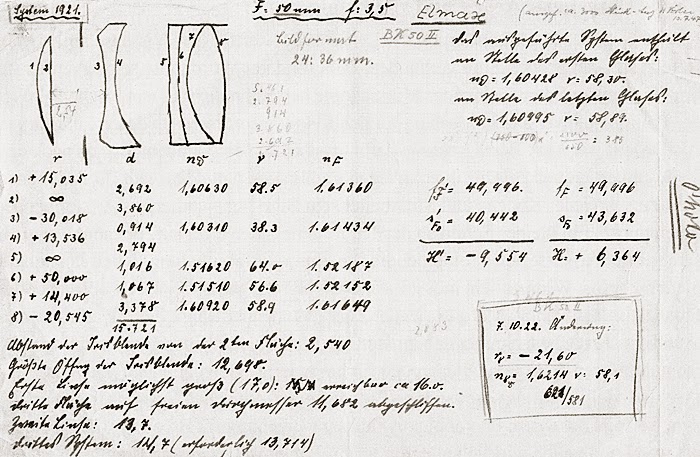 System 1921.
F: 50 mm f: 3,5
Elmax
Bildformat
24:36 mm.
BK 50 II
Das ausgeführte System enthält
an Stelle des ersten Glases:
nD = 1,60428 v = 58,30.
an Stelle des letzten Glases:
nD = 1,60995 v = 58,89.
1 2 3 4 5 6 7 8
r d nD v nF
1) + 15,035
2,692 1.60630 58.5 1.61360
2) ∞
3,860
3) - 30,018
0,914 1.60310 38.3 1.61434
4) + 13,536
2,794
5) ∞
1,016 1.51620 64.0 1.52187
6) + 50,000
1,067 1.51510 56.6 1.52152
7) + 14,400
3,378 1.60920 58.9 1.61649
8) - 20,545
15.721
f'F = 49,996. fF = 49,996
s'F = 40,442 sF = 43,632
H' = - 9,554 H = + 6,364
Abstand der Irisblende von der 2ten Fläche: 2,540
Größte Öffng der Irisblende: 12,698.
Erste Linse möglichst groß (17,0): erreichbar ca 16.0.
Dritte Fläche mit freien Durchmesser 11,682 abgeschliffen.
Zweite Linse: 13,7.
Drittes System: 14,7 (erforderlich 13,714)
BK 50 II
7.10.22. Änderung:
r8 = - 21,60
nD = 1,6214 v = 58,1
621/581